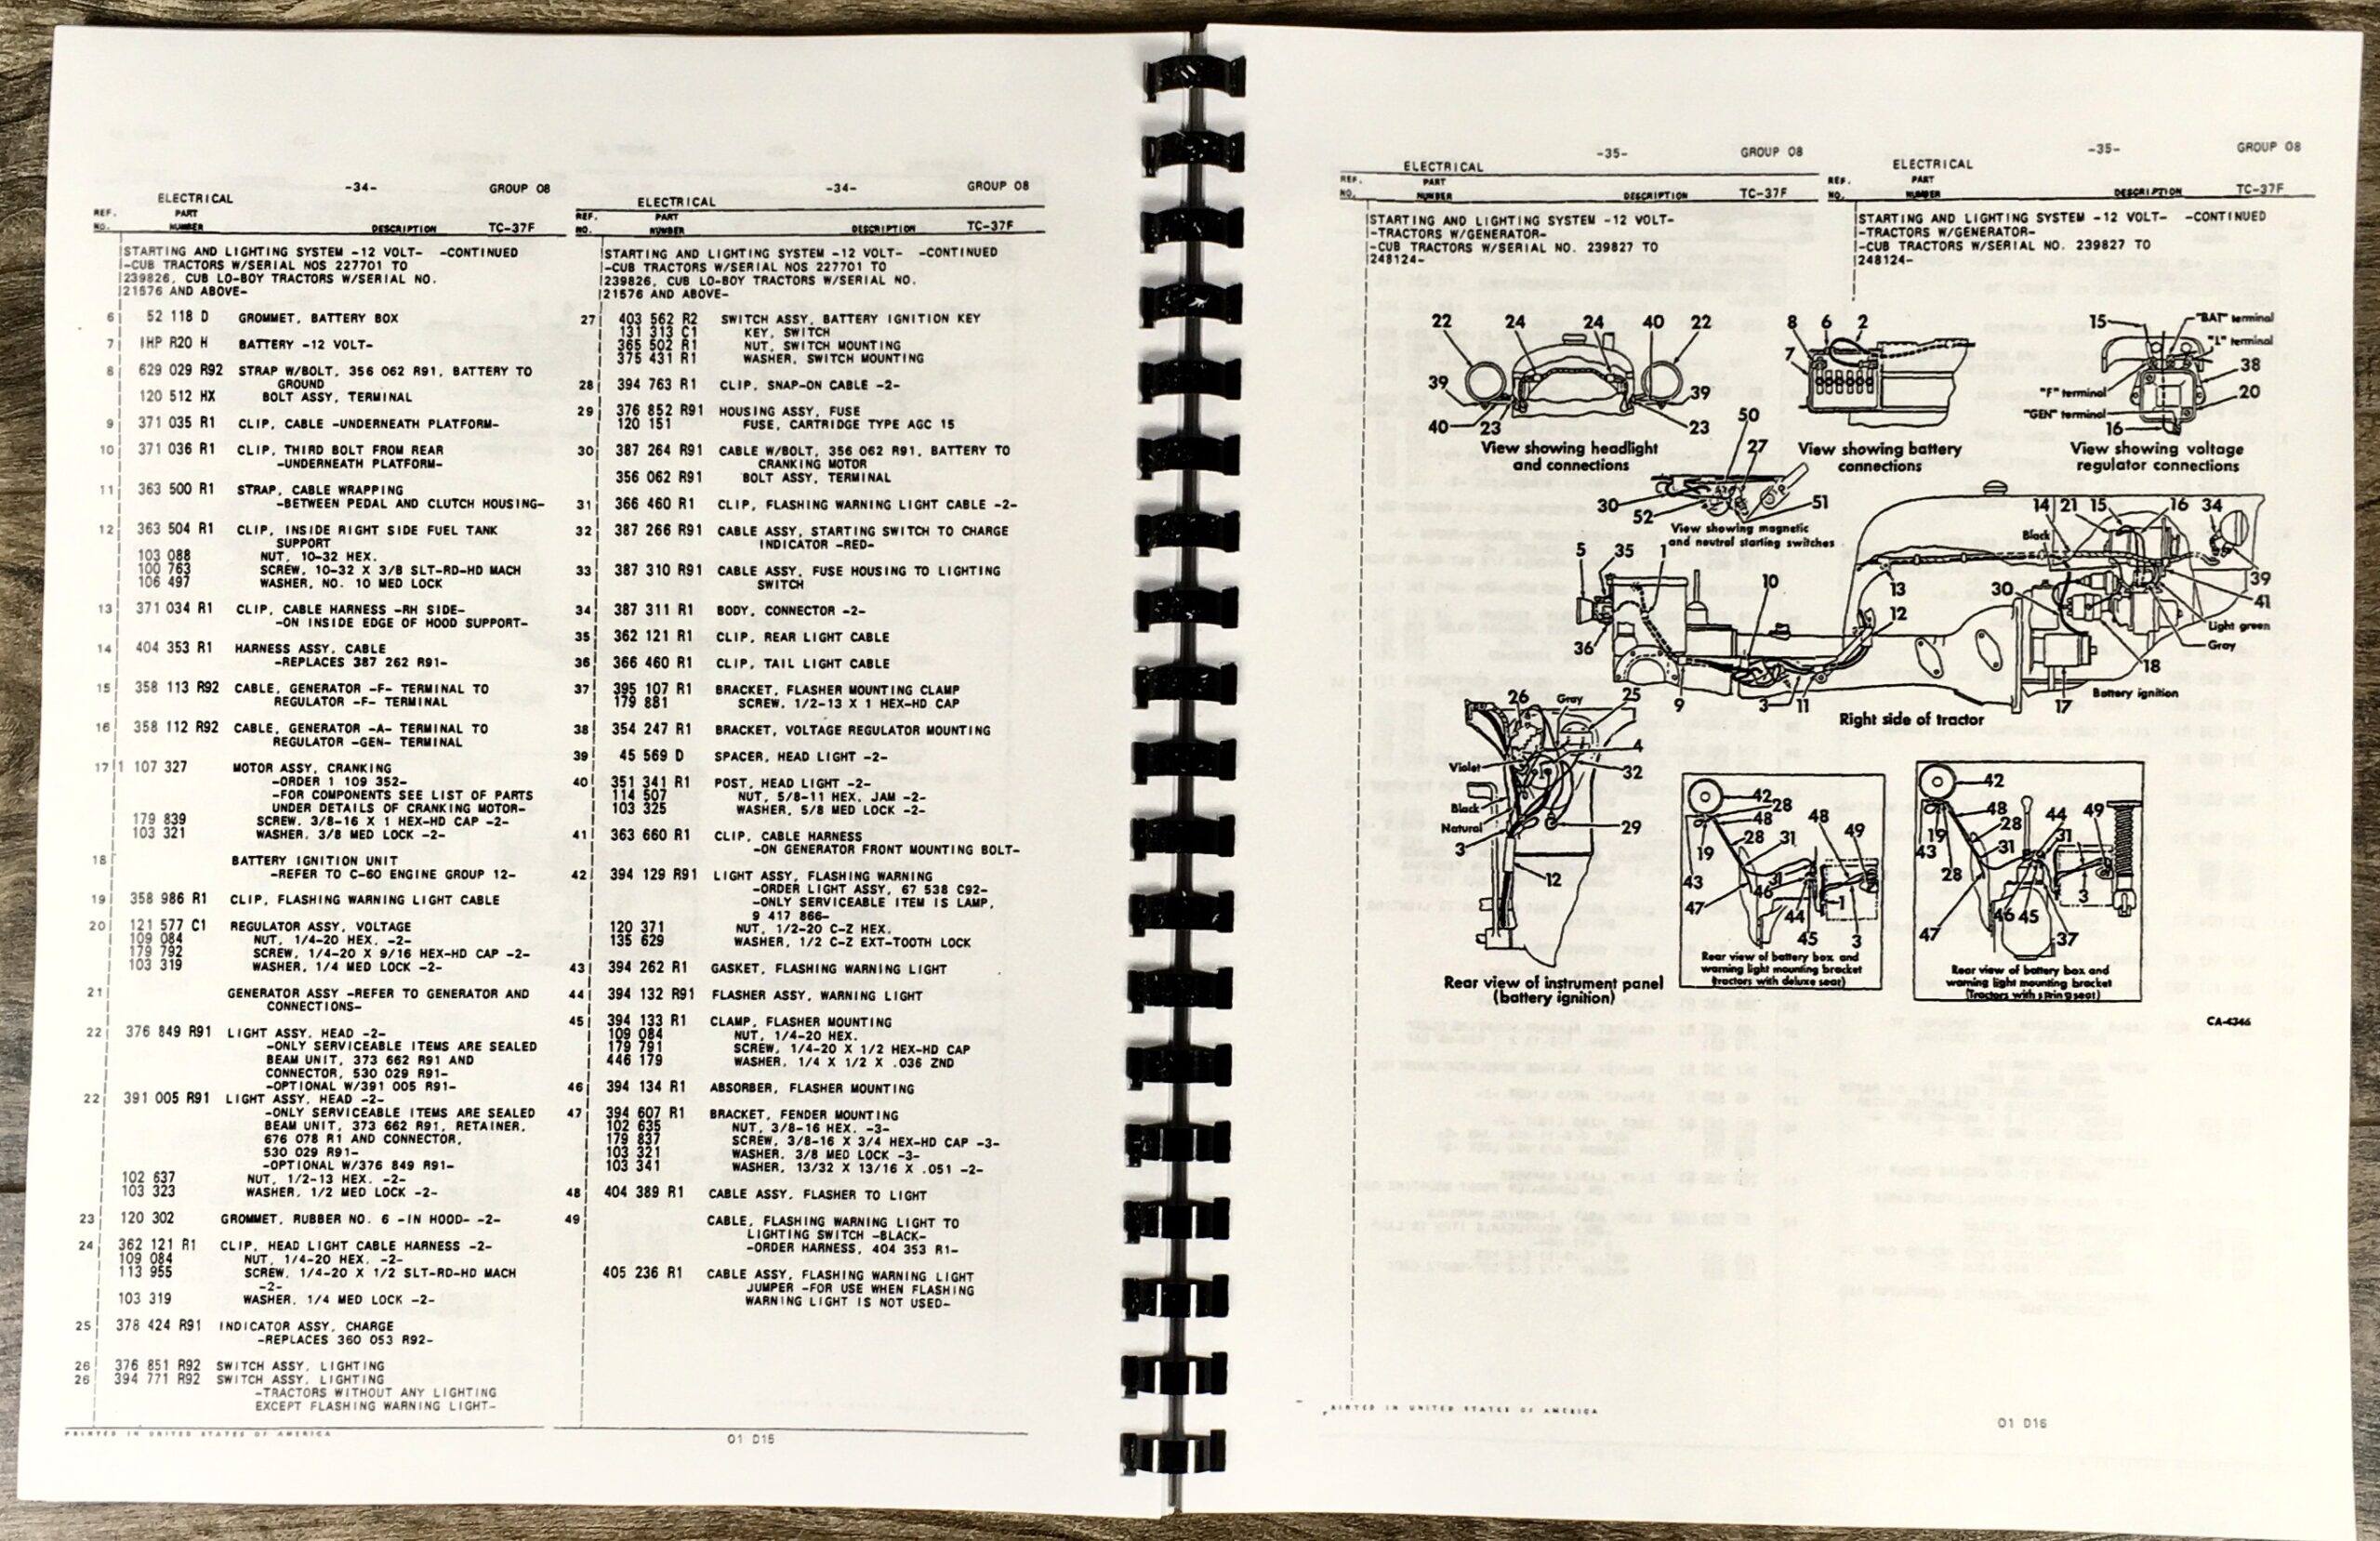 -34-
GROUP 08
ELECTRICAL
REF. NO.
PART NUMBER
DESCRIPTION
TC-37F
STARTING AND LIGHTING SYSTEM -12 VOLT- -CONTINUED
-CUB TRACTORS W/SERIAL NOS 227701 TO
239826, CUB LO-BOY TRACTORS W/SERIAL NO.
21576 AND ABOVE-
6 52 118 D GROMMET, BATTERY BOX
7 IHP R20 H BATTERY -12 VOLT-
8 629 029 R92 STRAP W/BOLT, 356 062 R91, BATTERY TO
GROUND
120 512 HX BOLT ASSY, TERMINAL
9 371 035 R1 CLIP, CABLE -UNDERNEATH PLATFORM-
10 371 036 R1 CLIP, THIRD BOLT FROM REAR
-UNDERNEATH PLATFORM-
11 363 500 R1 STRAP, CABLE WRAPPING
-BETWEEN PEDAL AND CLUTCH HOUSING-
12 363 504 R1 CLIP, INSIDE RIGHT SIDE FUEL TANK
SUPPORT
103 088 NUT, 10-32 HEX.
100 763 SCREW, 10-32 X 3/8 SLT-RD-HD MACH
106 497 WASHER, NO. 10 MED LOCK
13 371 034 R1 CLIP, CABLE HARNESS -RH SIDE-
-ON INSIDE EDGE OF HOOD SUPPORT-
14 404 353 R1 HARNESS ASSY, CABLE
-REPLACES 387 262 R91-
15 358 113 R92 CABLE, GENERATOR -F- TERMINAL TO
REGULATOR -F- TERMINAL
16 358 112 R92 CABLE, GENERATOR -A- TERMINAL TO
REGULATOR -GEN- TERMINAL
17 1 107 327 MOTOR ASSY, CRANKING
-ORDER 1 109 352-
-FOR COMPONENTS SEE LIST OF PARTS
UNDER DETAILS OF CRANKING MOTOR-
179 839 SCREW, 3/8-16 X 1 HEX-HD CAP -2-
103 321 WASHER, 3/8 MED LOCK -2-
18 BATTERY IGNITION UNIT
-REFER TO C-60 ENGINE GROUP 12-
19 358 986 R1 CLIP, FLASHING WARNING LIGHT CABLE
20 121 577 C1 REGULATOR ASSY, VOLTAGE
109 084 NUT, 1/4-20 HEX. -2-
179 792 SCREW, 1/4-20 X 9/16 HEX-HD CAP -2-
103 319 WASHER, 1/4 MED LOCK -2-
21 GENERATOR ASSY -REFER TO GENERATOR AND
CONNECTIONS-
22 376 849 R91 LIGHT ASSY, HEAD -2-
-ONLY SERVICEABLE ITEMS ARE SEALED
BEAM UNIT, 373 662 R91 AND
CONNECTOR, 530 029 R91-
-OPTIONAL W/391 005 R91-
22 391 005 R91 LIGHT ASSY, HEAD -2-
-ONLY SERVICEABLE ITEMS ARE SEALED
BEAM UNIT, 373 662 R91, RETAINER,
676 078 R1 AND CONNECTOR,
530 029 R91-
-OPTIONAL W/376 849 R91-
102 637 NUT, 1/2-13 HEX. -2-
103 323 WASHER, 1/2 MED LOCK -2-
23 120 302 GROMMET, RUBBER NO. 6 -IN HOOD- -2-
24 362 121 R1 CLIP, HEAD LIGHT CABLE HARNESS -2-
109 084 NUT, 1/4-20 HEX. -2-
113 955 SCREW, 1/4-20 X 1/2 SLT-RD-HD MACH
-2-
103 319 WASHER, 1/4 MED LOCK -2-
25 378 424 R91 INDICATOR ASSY, CHARGE
-REPLACES 360 053 R92-
26 376 851 R92 SWITCH ASSY, LIGHTING
26 394 771 R92 SWITCH ASSY, LIGHTING
-TRACTORS WITHOUT ANY LIGHTING
EXCEPT FLASHING WARNING LIGHT-
PRINTED IN UNITED STATES OF AMERICA
-34-
GROUP 08
ELECTRICAL
REF. NO.
PART NUMBER
DESCRIPTION
TC-37F
STARTING AND LIGHTING SYSTEM -12 VOLT- -CONTINUED
-CUB TRACTORS W/SERIAL NOS 227701 TO
239826, CUB LO-BOY TRACTORS W/SERIAL NO.
21576 AND ABOVE-
27 403 562 R2 SWITCH ASSY, BATTERY IGNITION KEY
131 313 C1 KEY, SWITCH
365 502 R1 NUT, SWITCH MOUNTING
375 431 R1 WASHER, SWITCH MOUNTING
28 394 763 R1 CLIP, SNAP-ON CABLE -2-
29 376 852 R91 HOUSING ASSY, FUSE
120 151 FUSE, CARTRIDGE TYPE AGC 15
30 387 264 R91 CABLE W/BOLT, 356 062 R91, BATTERY TO
CRANKING MOTOR
356 062 R91 BOLT ASSY, TERMINAL
31 366 460 R1 CLIP, FLASHING WARNING LIGHT CABLE -2-
32 387 266 R91 CABLE ASSY, STARTING SWITCH TO CHARGE
INDICATOR -RED-
33 387 310 R91 CABLE ASSY, FUSE HOUSING TO LIGHTING
SWITCH
34 387 311 R1 BODY, CONNECTOR -2-
35 362 121 R1 CLIP, REAR LIGHT CABLE
36 366 460 R1 CLIP, TAIL LIGHT CABLE
37 395 107 R1 BRACKET, FLASHER MOUNTING CLAMP
179 881 SCREW, 1/2-13 X 1 HEX-HD CAP
38 354 247 R1 BRACKET, VOLTAGE REGULATOR MOUNTING
39 45 569 D SPACER, HEAD LIGHT -2-
40 351 341 R1 POST, HEAD LIGHT -2-
114 507 NUT, 5/8-11 HEX, JAM -2-
103 325 WASHER, 5/8 MED LOCK -2-
41 363 660 R1 CLIP, CABLE HARNESS
-ON GENERATOR FRONT MOUNTING BOLT-
42 394 129 R91 LIGHT ASSY, FLASHING WARNING
-ORDER LIGHT ASSY, 67 538 C92-
-ONLY SERVICEABLE ITEM IS LAMP,
9 417 866-
120 371 NUT, 1/2-20 C-Z HEX.
135 629 WASHER, 1/2 C-Z EXT-TOOTH LOCK
43 394 262 R1 GASKET, FLASHING WARNING LIGHT
44 394 132 R91 FLASHER ASSY, WARNING LIGHT
45 394 133 R1 CLAMP, FLASHER MOUNTING
109 084 NUT, 1/4-20 HEX.
179 791 SCREW, 1/4-20 X 1/2 HEX-HD CAP
446 179 WASHER, 1/4 X 1/2 X .036 ZND
46 394 134 R1 ABSORBER, FLASHER MOUNTING
47 394 607 R1 BRACKET, FENDER MOUNTING
102 635 NUT, 3/8-16 HEX. -3-
179 837 SCREW, 3/8-16 X 3/4 HEX-HD CAP -3-
103 321 WASHER, 3/8 MED LOCK -3-
103 341 WASHER, 13/32 X 13/16 X .051 -2-
48 404 389 R1 CABLE ASSY, FLASHER TO LIGHT
49 CABLE, FLASHING WARNING LIGHT TO
LIGHTING SWITCH -BLACK-
-ORDER HARNESS, 404 353 R1-
405 236 R1 CABLE ASSY, FLASHING WARNING LIGHT
JUMPER -FOR USE WHEN FLASHING
WARNING LIGHT IS NOT USED-
01 D15
-35-
GROUP 08
ELECTRICAL
REF. NO.
PART NUMBER
DESCRIPTION
TC-37F
STARTING AND LIGHTING SYSTEM -12 VOLT-
-TRACTORS W/GENERATOR-
-CUB TRACTORS W/SERIAL NO. 239827 TO
248124-
-35-
GROUP 08
ELECTRICAL
REF. NO.
PART NUMBER
DESCRIPTION
TC-37F
STARTING AND LIGHTING SYSTEM -12 VOLT- -CONTINUED
-TRACTORS W/GENERATOR-
-CUB TRACTORS W/SERIAL NO. 239827 TO
248124-
22 24 24 40 22
39 39
40 23 23
View showing headlight
and connections
8 6 2
7
View showing battery
connections
15 "BAT" terminal
"L" terminal
38
"F" terminal
20
"GEN" terminal
16
View showing voltage
regulator connections
50
27
30
52
51
View showing magnetic
and neutral starting switches
14 21 15 16 34
Black
5 35 1
10
13
12
30
39
41
Light green
Gray
36
18
Battery ignition
9 3 11 17
Right side of tractor
26 Gray 25
4
Violet
32
Black
Natural
29
3
12
Rear view of instrument panel
(battery ignition)
42
28
48 48
49
28 31
19
43
31
46
47
44 1
45 3
Rear view of battery box and
warning light mounting bracket
(tractors with deluxe seat)
42
48 44 49
28
19 31
43 31
28
3
46 45
47 37
Rear view of battery box and
warning light mounting bracket
(Tractors with spring seat)
CA-4346
PRINTED IN UNITED STATES OF AMERICA
01 D16